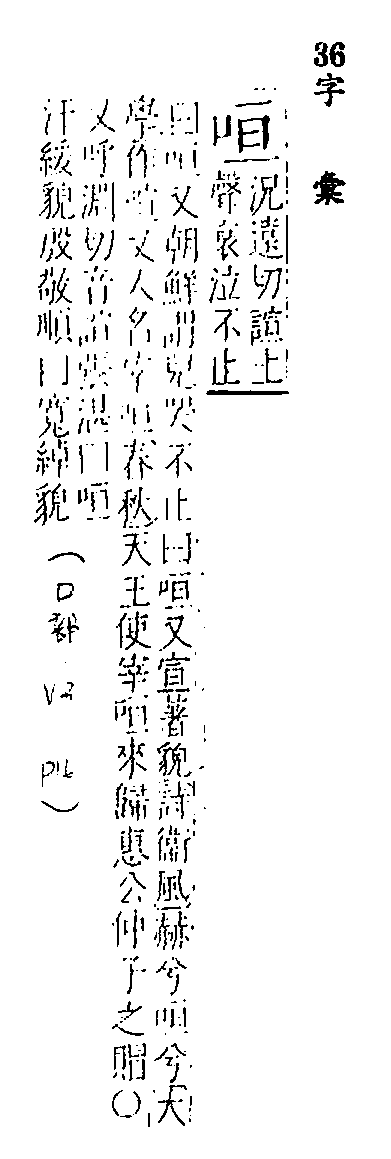 36 字彙
咺況遠切諠上
聲哀泣不止
曰咺又朝鮮謂兒哭不止曰咺又宣著貌詩衛風赫兮咺兮大
學作喧又人名宰咺春秋天王使宰咺來歸惠公仲子之賵○
又呼淵切音諠張湛曰咺
汗緩貌殷敬順曰寬綽貌(口部 V3 P16)